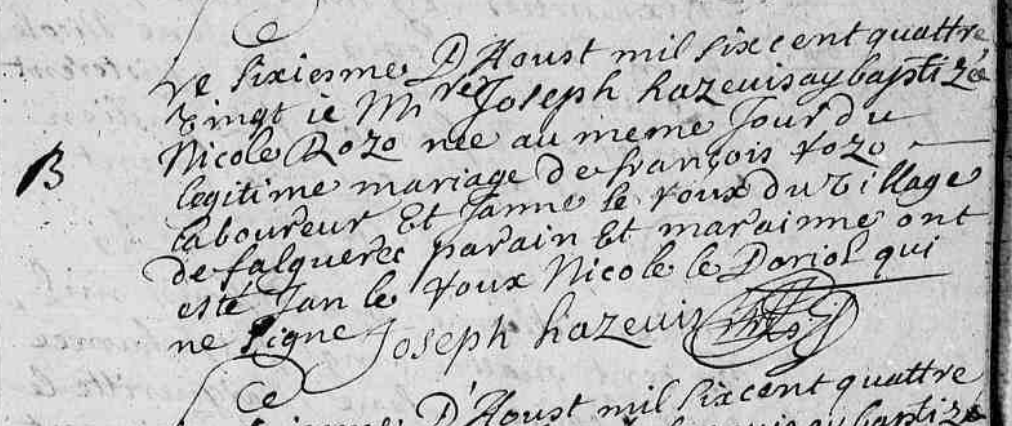 Ce
sixiesme D'Aoust mil six cent quattre
vingt ie Mre Joseph hazevis ay baptizée
Nicole Rozo née au meme Jour du
B
legitime mariage de françois rozo
laboureur Et Janne le roux du village
de falguerec parain Et marainne ont
esté Jan le roux Nicole le Doriol qui
ne signe Joseph hazevis
Ce
D'Aoust mil six cent quattre
ay baptizé